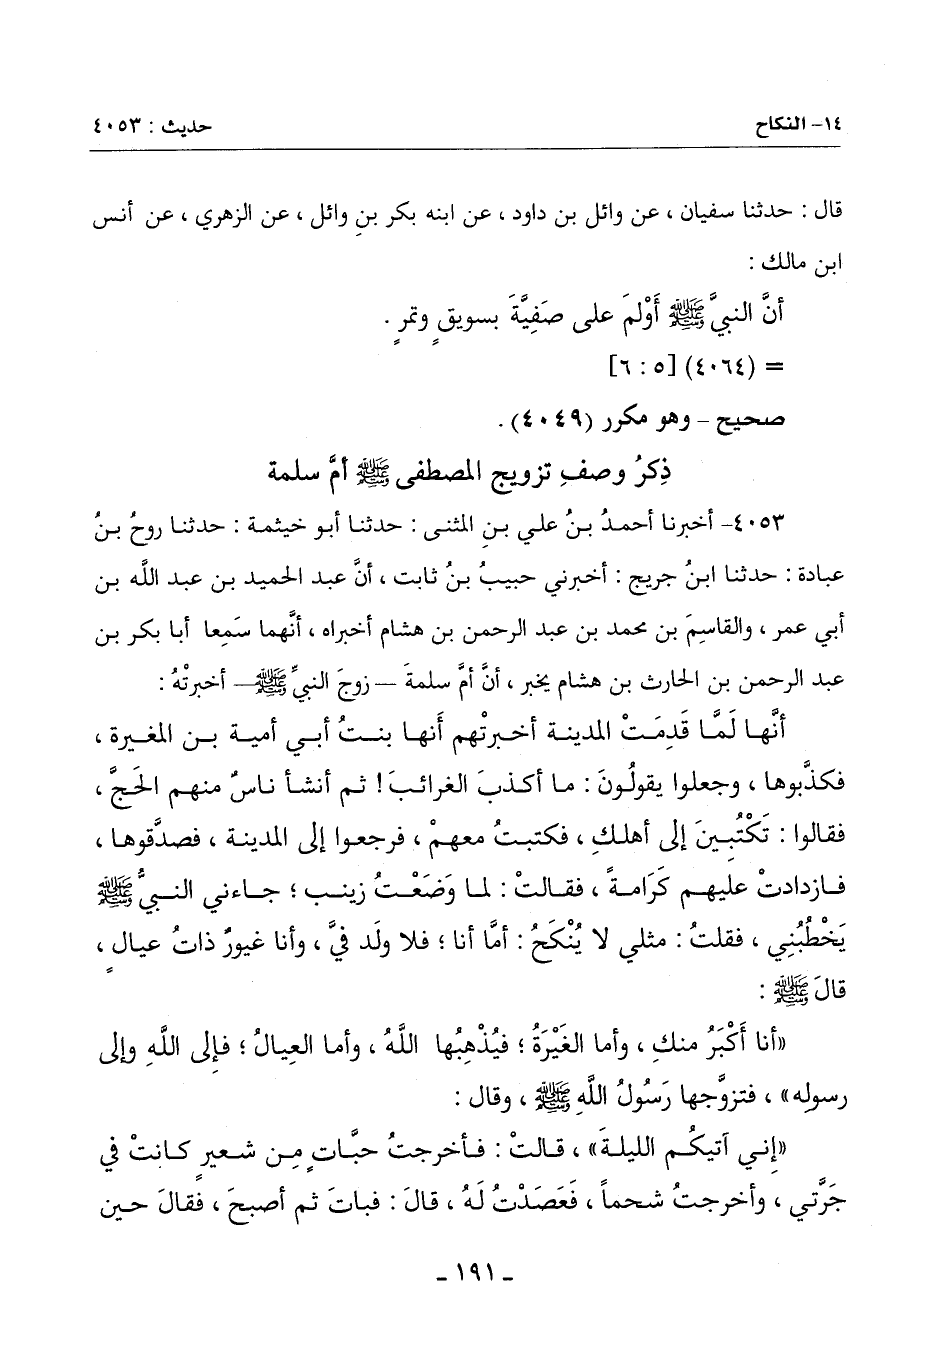 ١٤- النكاح حديث : ٤٠٥٣
قال : حدثنا سفيان ، عن وائل بن داود ، عن ابنه بكر بنِ وائل ، عن الزهري ، عن أنس
ابن مالك :
أنَّ النبيَّ ﷺ أَوْلَمَ على صَفِيَّةَ بسويقٍ وتمرٍ .
= (٤٠٦٤) [٥ : ٦]
صحيح - وهو مكرر (٤٠٤٩) .
ذِكرُ وصفِ تزويجِ المصطفى ﷺ أمَّ سلمة
٤٠٥٣- أخبرنا أحمدُ بنُ علي بنِ المثنى : حدثنا أبو خيثمة : حدثنا روحُ بنُ
عبادة : حدثنا ابنُ جريج : أخبرني حبيبُ بنُ ثابت ، أنَّ عبد الحميد بن عبد اللَّه بن
أبي عمر ، والقاسمَ بن محمد بن عبد الرحمن بن هشام أخبراه ، أنَّهما سَمِعا أبا بكر بن
عبد الرحمن بن الحارث بن هشام يخبر ، أنَّ أمَّ سلمةَ – زوجَ النبيِّ ﷺ – أخبرتْهُ :
أنَّها لَمَّا قَدِمَتْ المدينة أخبرتْهم أَنها بنتُ أبي أمية بن المغيرة ،
فكذَّبوها ، وجعلوا يقولُونَ : ما أكذبَ الغرائبَ ! ثم أنشأ ناسٌ منهم الحَجَّ ،
فقالوا : تَكْتُبِينَ إلى أهلكِ ، فكتبتُ معهمْ ، فرجعوا إلى المدينة ، فصدَّقوها ،
فازدادتْ عليهم كَرَامةً ، فقالتْ : لما وَضَعْتُ زينب ؛ جاءني النبيُّ ﷺ
يَخْطُبُنِي ، فقلتُ : مثلي لا يُنْكَحُ : أمَّا أنا ؛ فلا ولَد فيَّ ، وأنا غيورٌ ذاتُ عيالٍ ،
قالَ ﷺ :
«أنا أَكْبَرُ منكِ ، وأما الغَيْرَةُ ؛ فيُذْهِبُها اللَّهُ ، وأما العِيالُ ؛ فإلى اللَّهِ وإلى
رسوله» ، فتزوَّجها رَسُولُ اللَّهِ ﷺ ، وقال :
«إني آتيكُم الليلةَ» ، قالتْ : فأخرجتُ حبَّاتٍ مِن شعيرٍ كانتْ في
جَرَّتي ، وأخرجتُ شحماً ، فَعَصَدْتُ لَهُ ، قالَ : فباتَ ثم أصبحَ ، فقالَ حين
- ١٩١ -